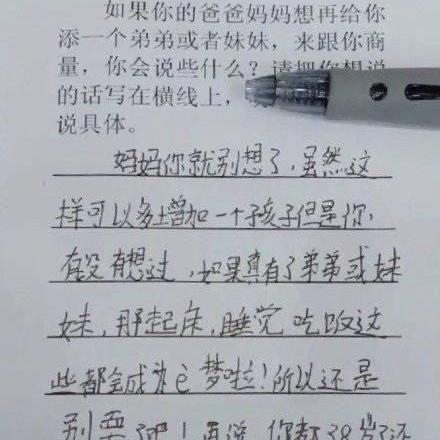 如果你的爸爸妈妈想再给你
添一个弟弟或者妹妹，来跟你商
量，你会说些什么？请把你想说
的话写在横线上，
说具体。
妈妈你就别想了，虽然这
样可以多增加一个孩子但是你，
有没有想过，如果真有了弟弟或妹
妹，那起床，睡觉吃饭这
些都会成为它梦啦！所以还是
别要了吧！再说，你都39岁了还